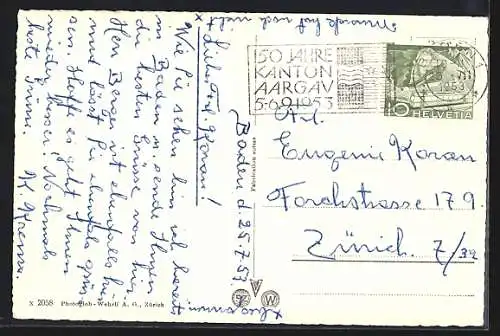 Baden d. 25.7.53.
Liebe Frl. Koran!
Wie Sie sehen bin ich bereits
in Baden u. sende Ihnen
die besten Grüsse von hier
Herr Berger ist ebenfalls hier
und lässt Sie ebenfalls grüs-
sen. Hoffe es geht Ihnen
wieder besser! Nochmals
beste Grüsse.
150 JAHRE
KANTON
AARGAU
5-6.9.1953
1953
10 HELVETIA
Frl.
Eugenie Koran
Forchstrasse 179
Zürich. 7/32
X 2058 Photoglob-Wehrli A. G., Zürich